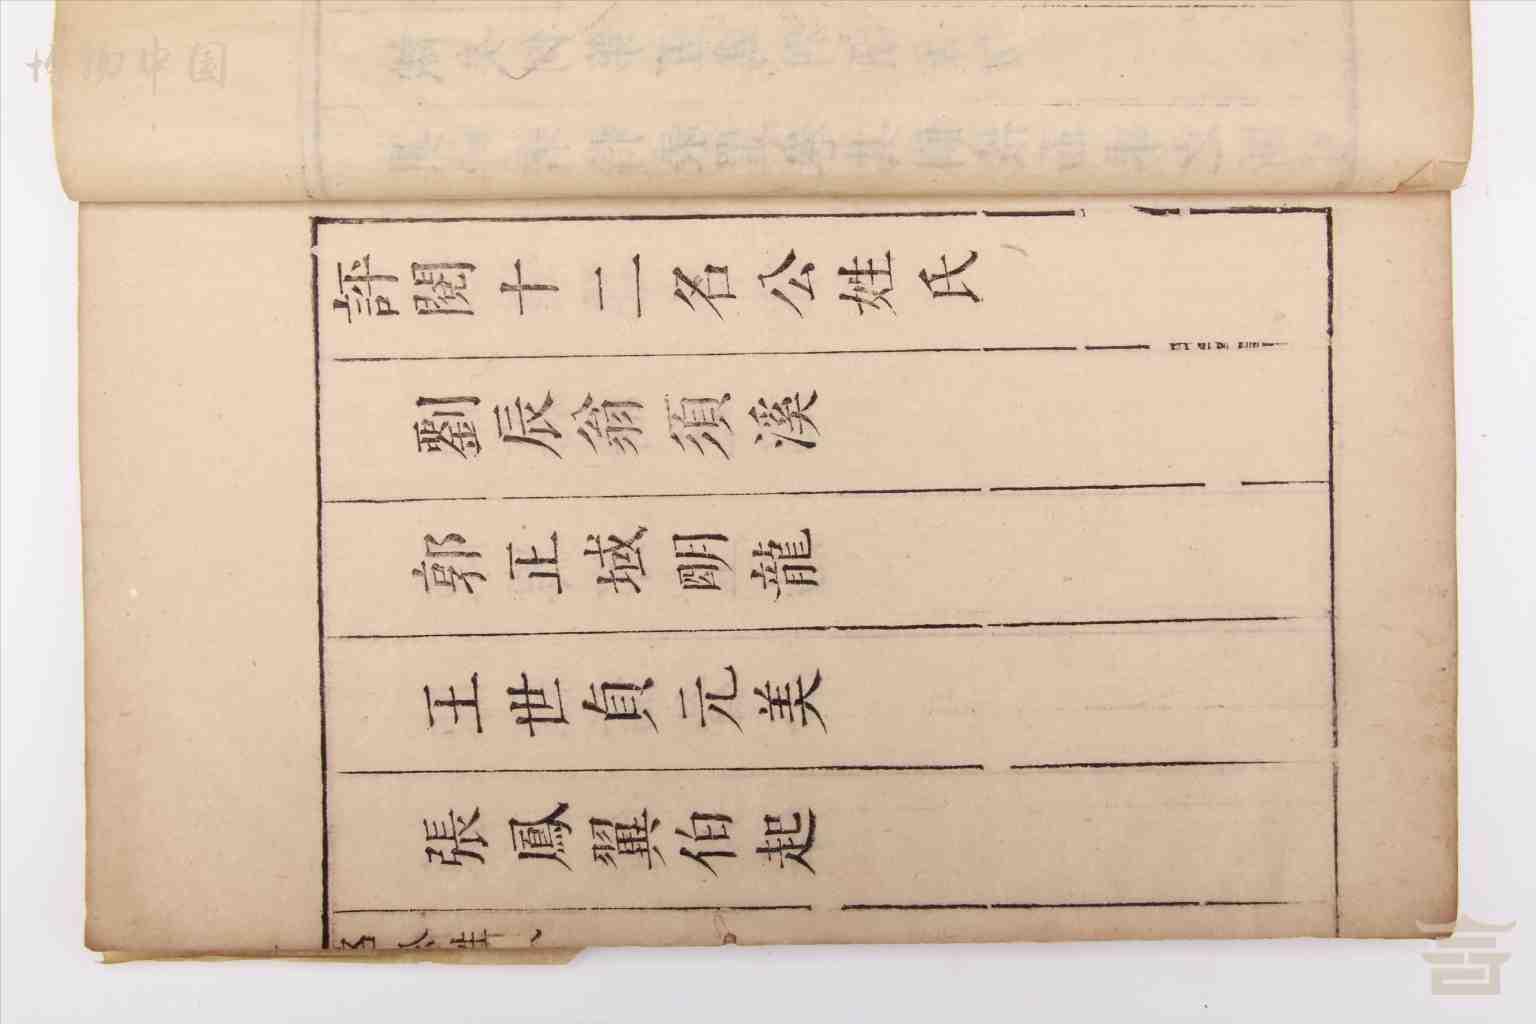 評閱十二名公姓氏
劉辰翁須溪
郭正域明龍
王世貞元美
張鳳翼伯起
博物中国